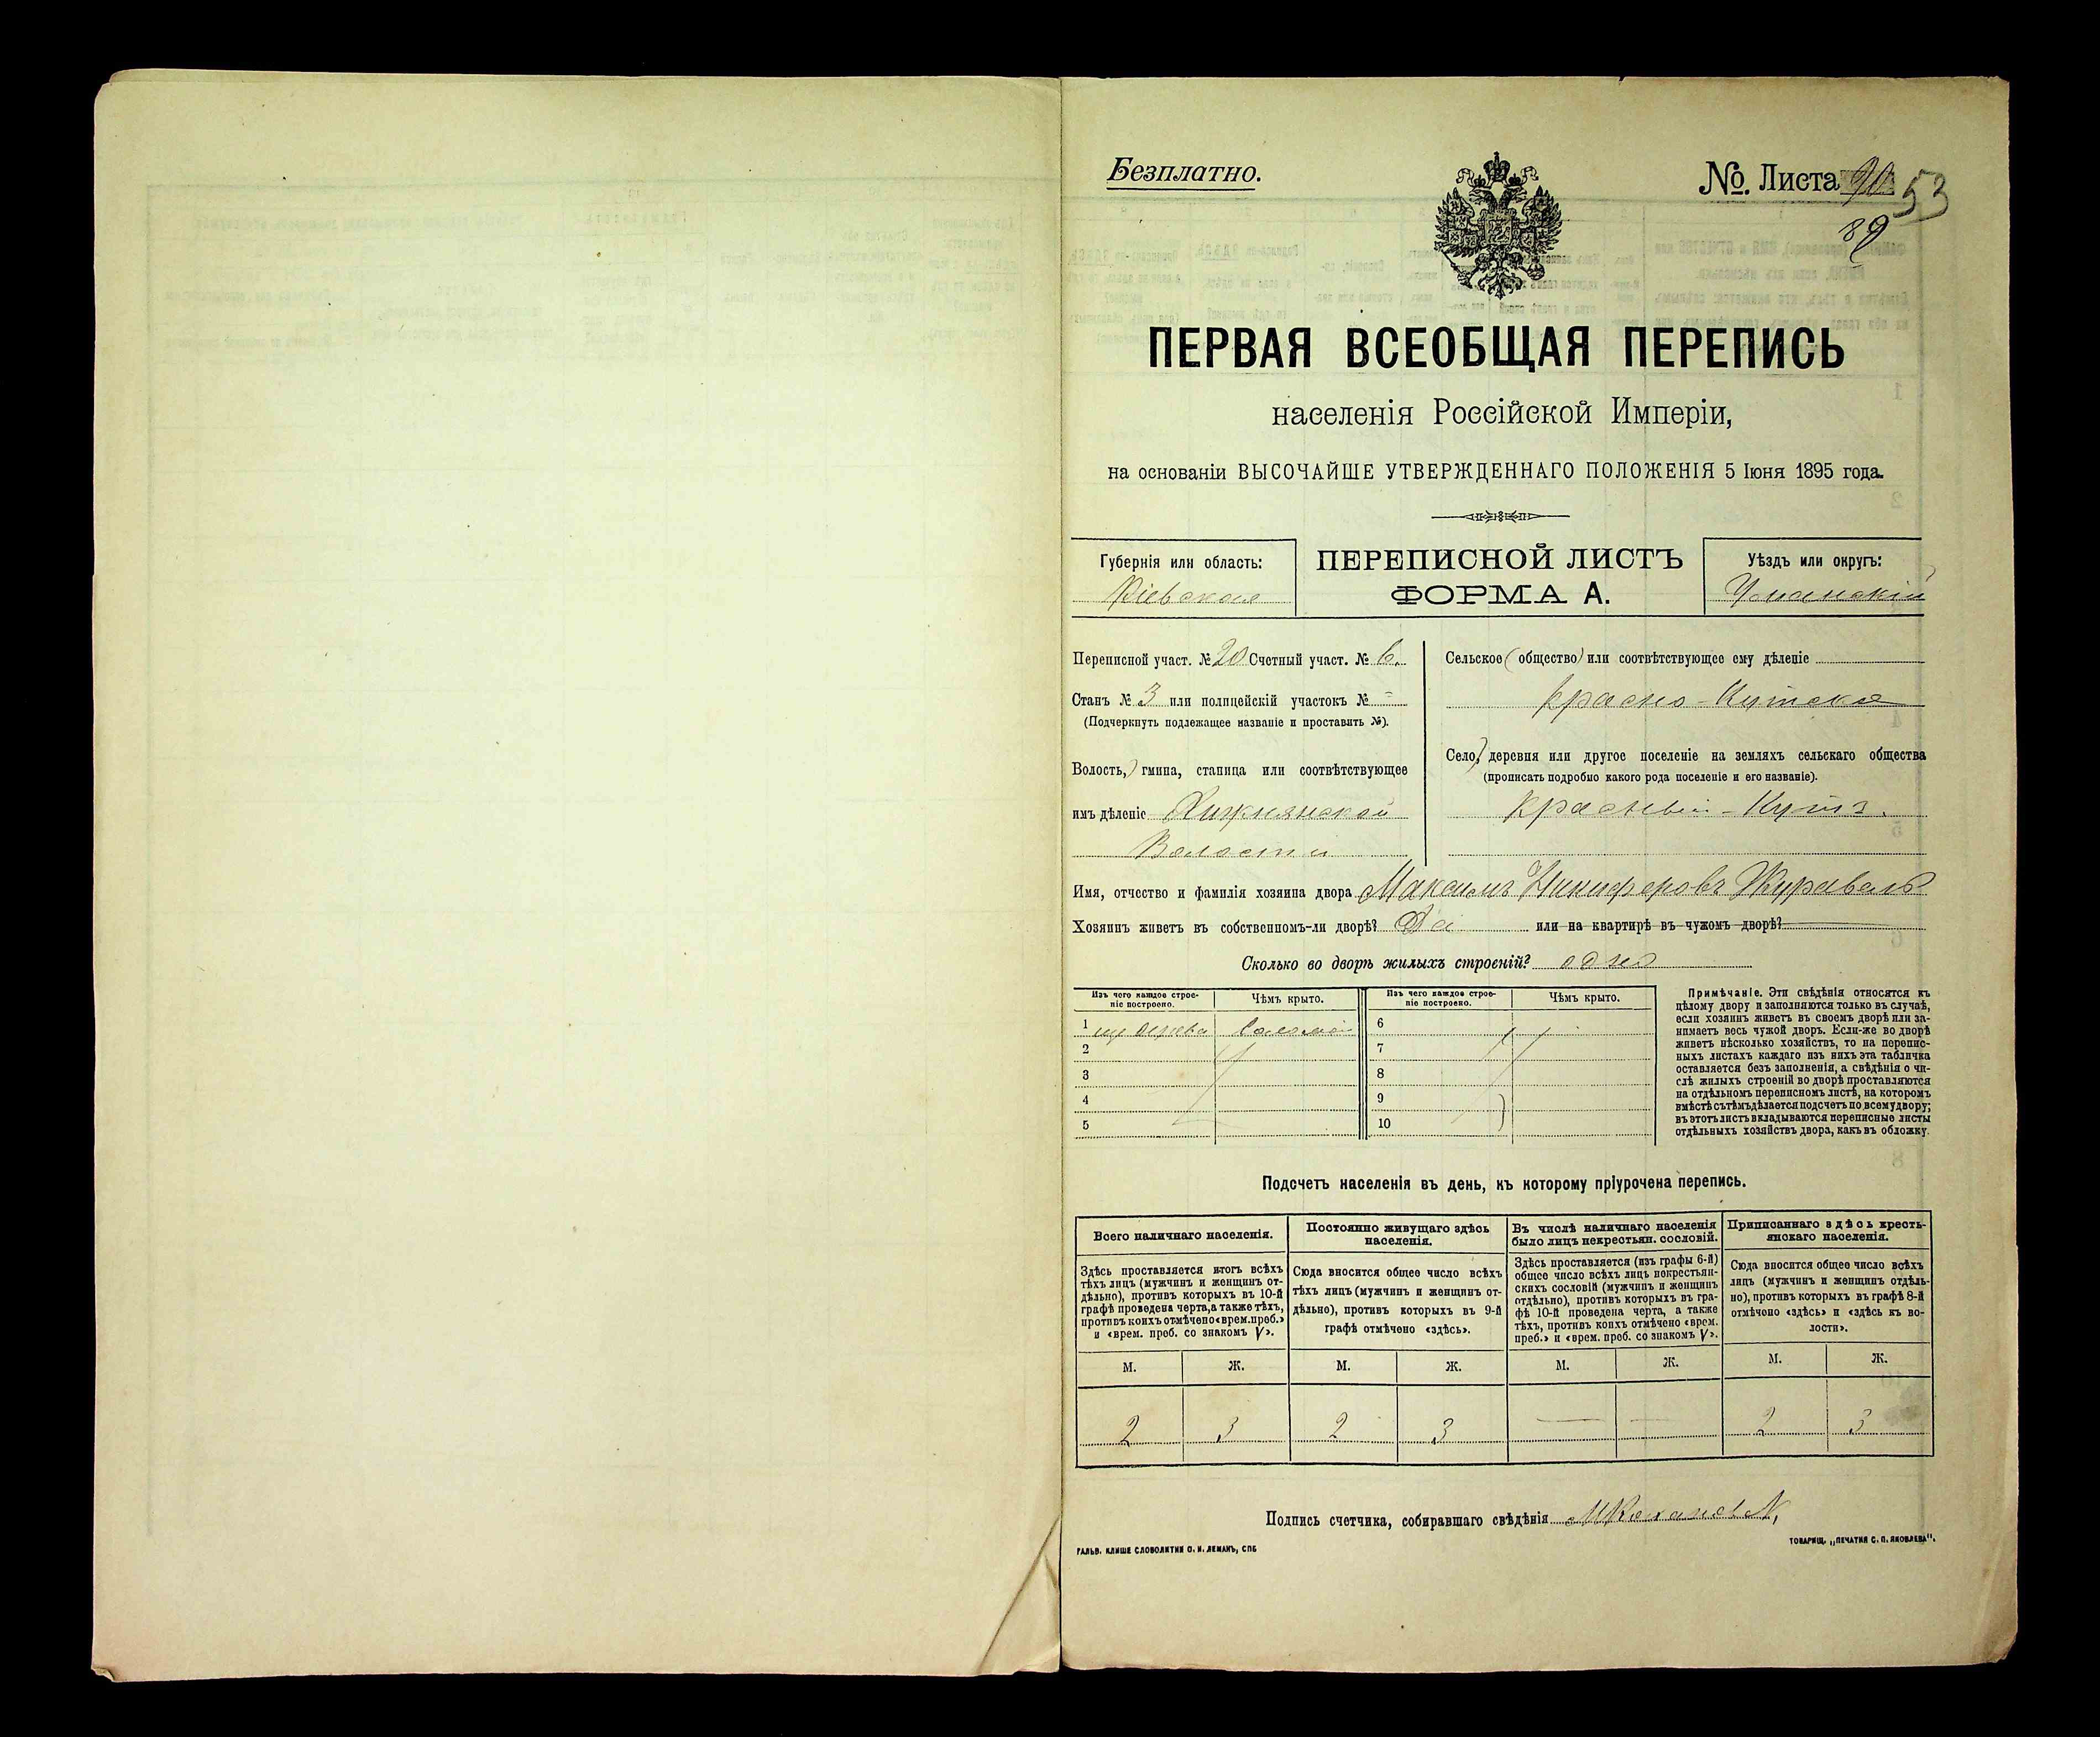 Безплатно.
№. Листа 90 53
89
ПЕРВАЯ ВСЕОБЩАЯ ПЕРЕПИСЬ
населенія Россійской Имперіи,
на основаніи ВЫСОЧАЙШЕ УТВЕРЖДЕННАГО ПОЛОЖЕНІЯ 5 Іюня 1895 года.
Губернія или область:
Кіевская
ПЕРЕПИСНОЙ ЛИСТЪ
ФОРМА А.
Уѣздъ или округъ:
Уманскій
Переписной участ. № 20 Счетный участ. № 6.
Станъ № 3 или полицейскій участокъ № -
(Подчеркнуть подлежащее названіе и проставить №).
Волость, гмина, станица или соотвѣтствующее
имъ дѣленіе Хижнянской
Волости
Сельское (общество) или соотвѣтствующее ему дѣленіе
Красно-Кутское
Село, деревня или другое поселеніе на земляхъ сельскаго общества
(прописать подробно какого рода поселеніе и его названіе).
Красный-Кутъ.
Имя, отчество и фамилія хозяина двора Максимъ Никифоровъ Журавель
Хозяинъ живетъ въ собственномъ-ли дворѣ? Да или на квартирѣ въ чужомъ дворѣ?
Сколько во дворѣ жилыхъ строеній? одно
Изъ чего каждое строе-
ніе построено.
Чѣмъ крыто.
Изъ чего каждое строе-
ніе построено.
Чѣмъ крыто.
1 изъ дерева Соломой
2
3
4
5
6
7
8
9
10
Примѣчаніе. Эти свѣдѣнія относятся къ
цѣлому двору и заполняются только въ случаѣ,
если хозяинъ живетъ въ своемъ дворѣ или за-
нимаетъ весь чужой дворъ. Если-же во дворѣ
живетъ нѣсколько хозяйствъ, то на перепис-
ныхъ листахъ каждаго изъ нихъ эта табличка
оставляется безъ заполненія, а свѣдѣнія о чи-
слѣ жилыхъ строеній во дворѣ проставляются
на отдѣльномъ переписномъ листѣ, на которомъ
вмѣстѣ съ тѣмъ дѣлается подсчетъ по всему двору;
въ этотъ листъ вкладываются переписные листы
отдѣльныхъ хозяйствъ двора, какъ въ обложку.
Подсчетъ населенія въ день, къ которому пріурочена перепись.
Всего наличнаго населенія.
Здѣсь проставляется итогъ всѣхъ
тѣхъ лицъ (мужчинъ и женщинъ от-
дѣльно), противъ которыхъ въ 10-й
графѣ проведена черта, а также тѣхъ,
противъ коихъ отмѣчено «врем. преб.»
и «врем. преб. со знакомъ V».
Постоянно живущаго здѣсь
населенія.
Сюда вносится общее число всѣхъ
тѣхъ лицъ (мужчинъ и женщинъ от-
дѣльно), противъ которыхъ въ 9-й
графѣ отмѣчено «здѣсь».
Въ числѣ наличнаго населенія
было лицъ некрестьян. сословій.
Здѣсь проставляется (изъ графы 6-й)
общее число всѣхъ лицъ некрестьян-
скихъ сословій (мужчинъ и женщинъ
отдѣльно), противъ которыхъ въ гра-
фѣ 10-й проведена черта, а также
тѣхъ, противъ коихъ отмѣчено «врем.
преб.» и «врем. преб. со знакомъ V».
Приписаннаго здѣсь кресть-
янскаго населенія.
Сюда вносится общее число всѣхъ
лицъ (мужчинъ и женщинъ отдѣль-
но), противъ которыхъ въ графѣ 8-й
отмѣчено «здѣсь» и «здѣсь къ во-
лости».
М. Ж. М. Ж. М. Ж. М. Ж.
2 3 2 3 — — 2 3
Подпись счетчика, собиравшаго свѣдѣнія
ГАЛЬВ. КЛИШЕ СЛОВОЛИТНИ О. И. ЛЕМАНЪ, СПБ
ТОВАРИЩ. „ПЕЧАТНЯ С. П. ЯКОВЛЕВА".